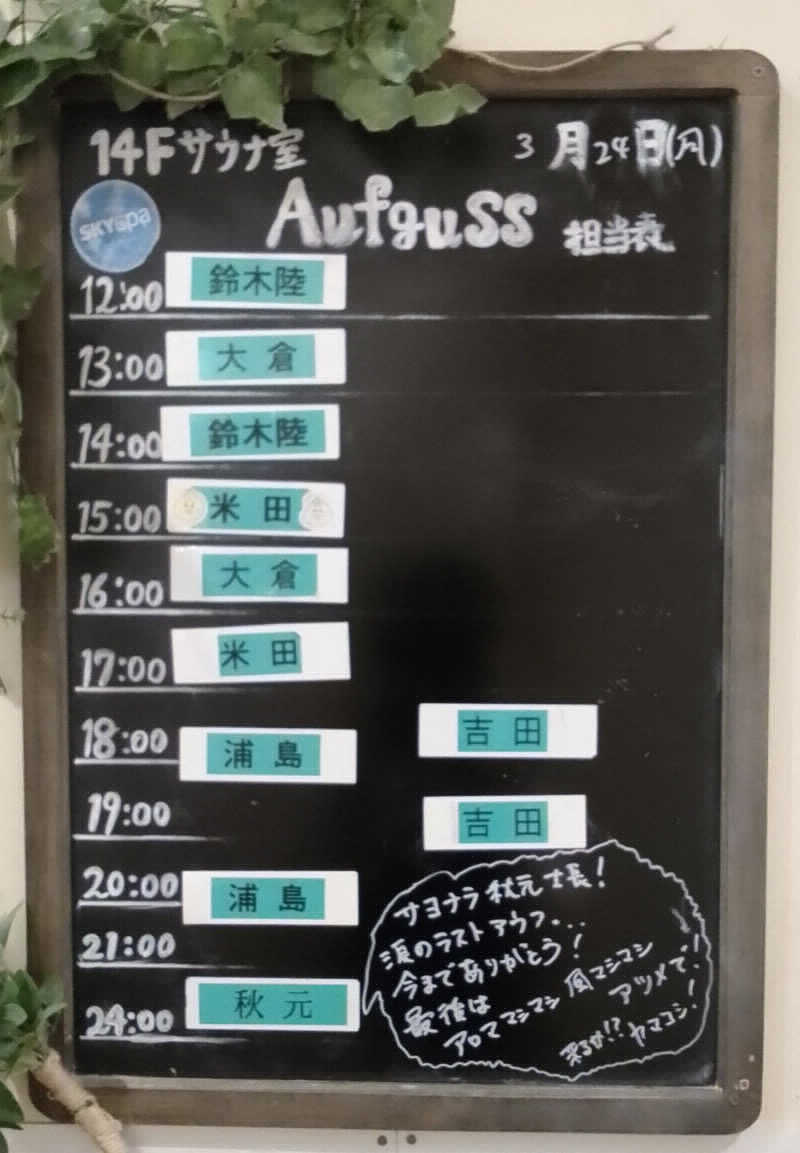 14Fサウナ室 3月24日(月)
SKYSpa
Aufguss 担当表
12:00 鈴木陸
13:00 大倉
14:00 鈴木陸
15:00 米田
16:00 大倉
17:00 米田
18:00 浦島 吉田
19:00 吉田
20:00 浦島
21:00
24:00 秋元
サヨナラ秋元士長!
涙のラストアウフ...
今までありがとう!
最後は
アロママシマシ 風マシマシ
アツメで!
来るか!?ヤマコシ!